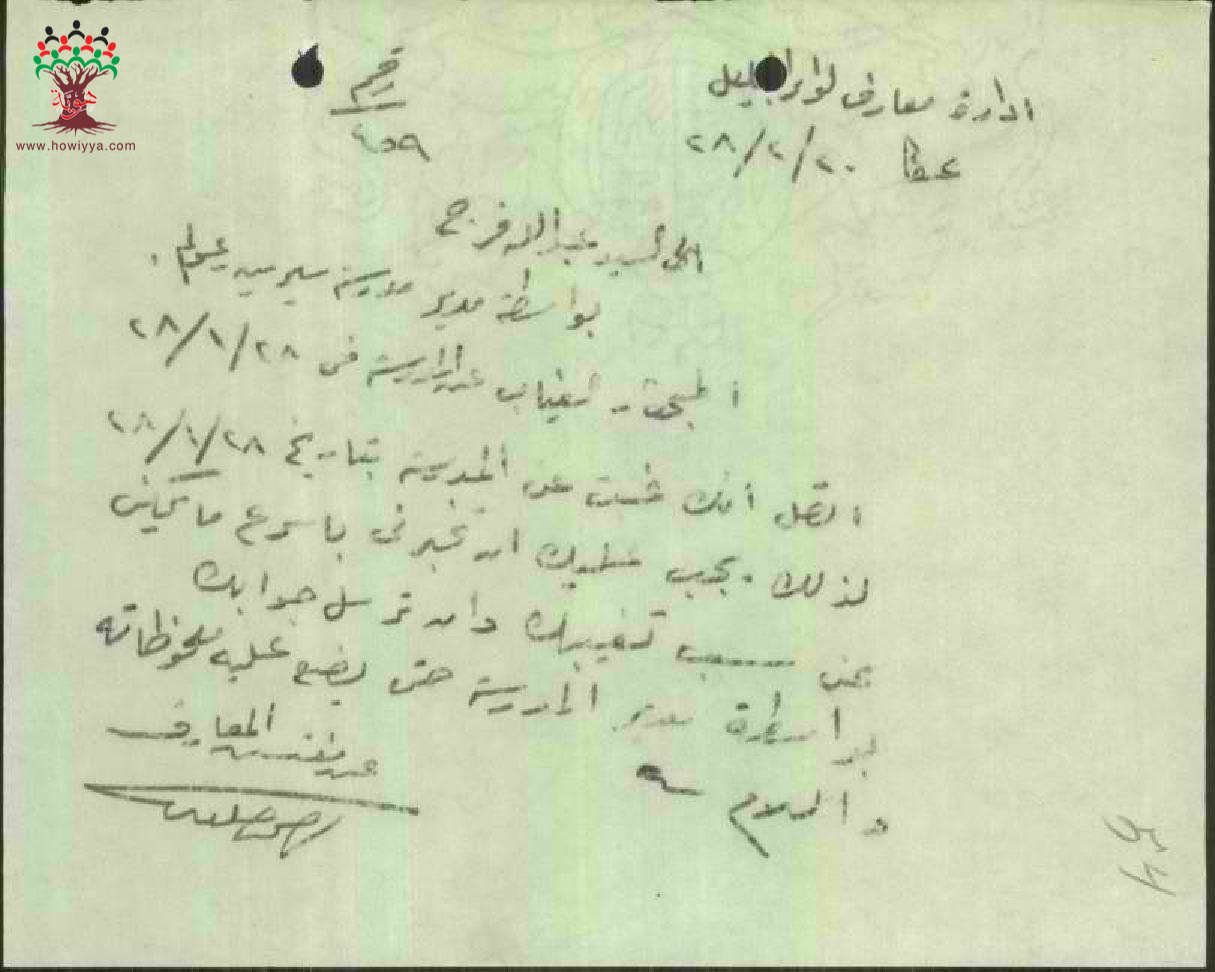 هوية
www.howiyya.com
رقم
٤٥٩
ادارة معارف لواء الجليل
عكا ٢٨/٢/٢٠
الى السيد عبدالله فرج
بواسطة مدير مدرسة
الغياب عن المدرسة في ٢٨/١/٢٨
اتصل انك عن المدرسة بتاريخ ٢٨/١/٢٨
لذلك يجب عليك ان تخبرني باسرع ما يمكن
عن سبب تغيبك وان ترسل جوابك
بواسطة مدير المدرسة حتى يضع عليه ملحوظاته
والسلام
عن مفتش المعارف